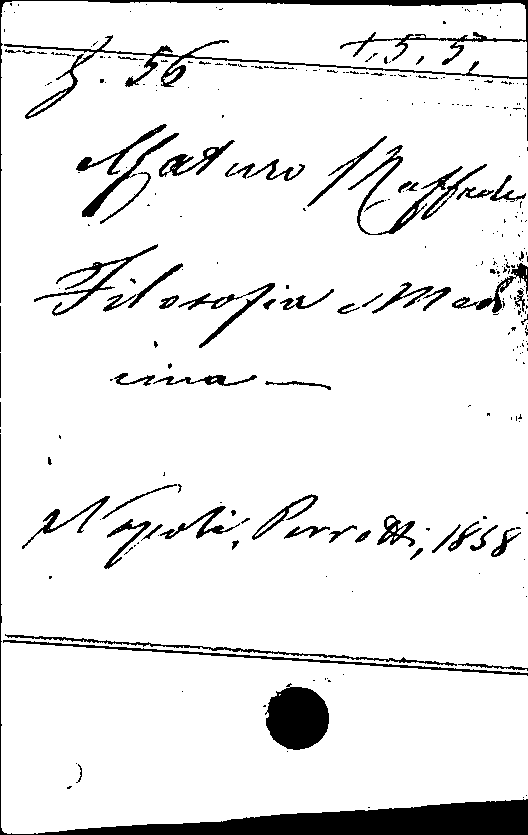 f. 56 +. 5. 5.
Maturo Raffaele
Filosofia e Medi
cina —
Napoli, Perrotti, 1858